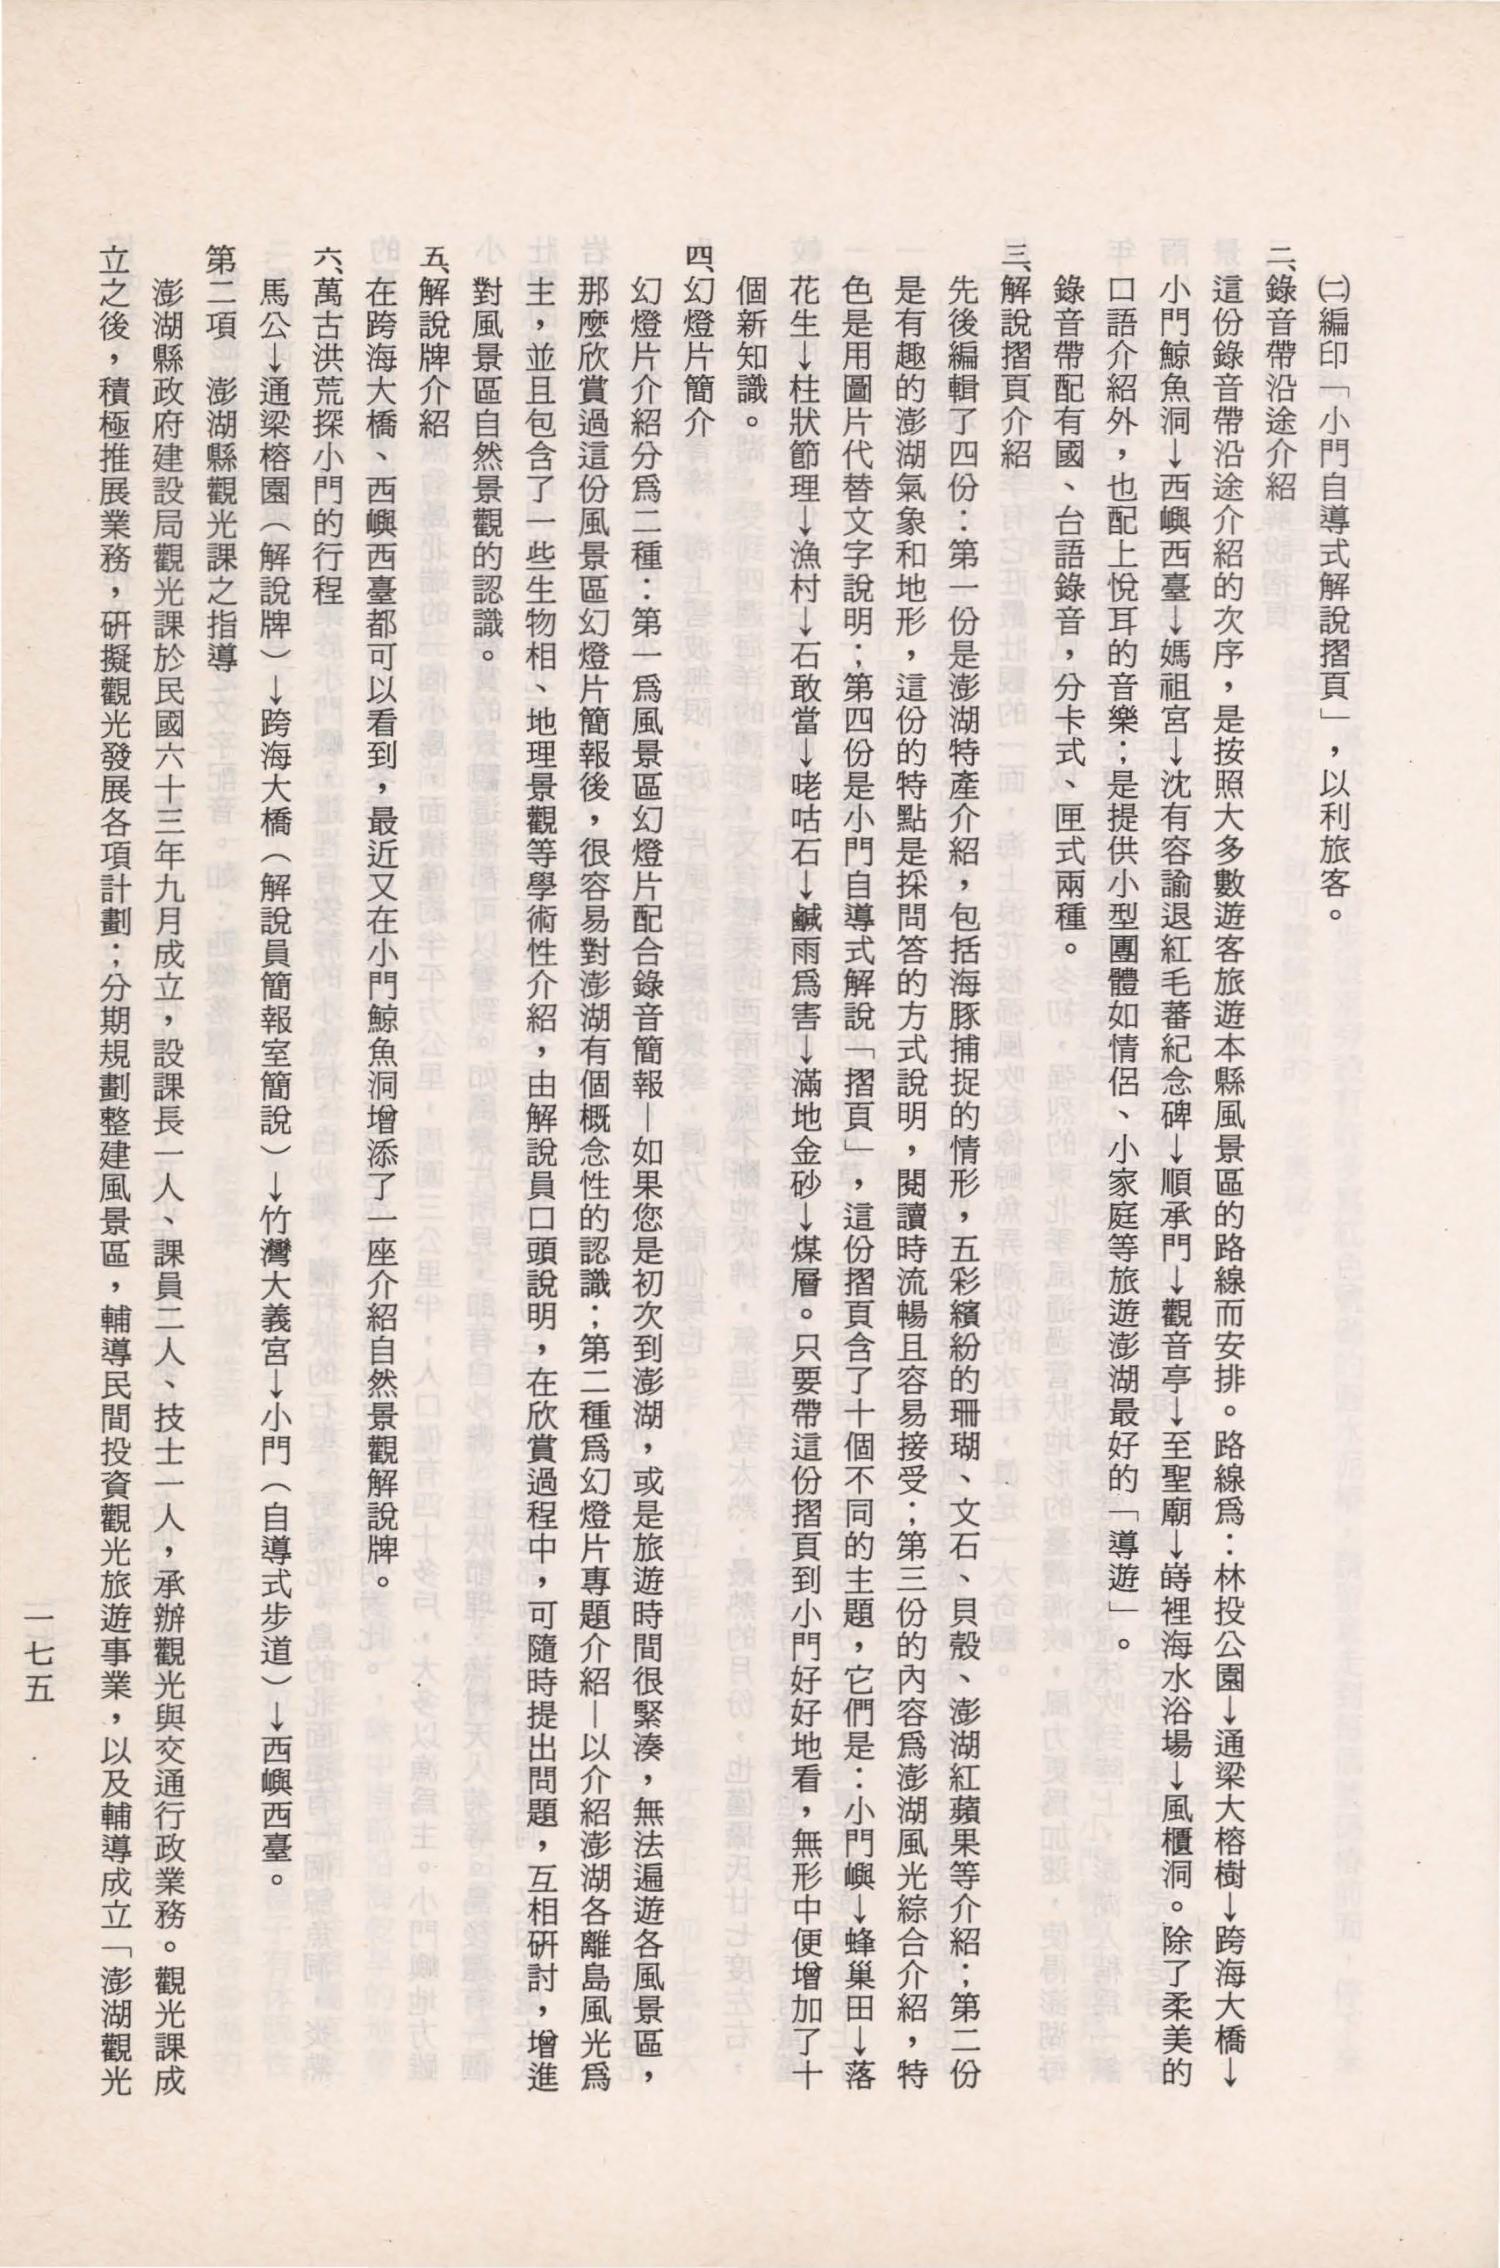 ㈡編印「小門自導式解說摺頁」，以利旅客。
二、錄音帶沿途介紹
這份錄音帶沿途介紹的次序，是按照大多數遊客旅遊本縣風景區的路線而安排。路線為：林投公園→通梁大榕樹→跨海大橋→
小門鯨魚洞→西嶼西臺→媽祖宮→沈有容諭退紅毛蕃紀念碑→順承門→觀音亭→至聖廟→嵵裡海水浴場→風櫃洞。除了柔美的
口語介紹外，也配上悅耳的音樂；是提供小型團體如情侶、小家庭等旅遊澎湖最好的「導遊」。
錄音帶配有國、台語錄音，分卡式、匣式兩種。
三、解說摺頁介紹
先後編輯了四份：第一份是澎湖特產介紹，包括海豚捕捉的情形，五彩繽紛的珊瑚、文石、貝殼、澎湖紅蘋果等介紹；第二份
是有趣的澎湖氣象和地形，這份的特點是採問答的方式說明，閱讀時流暢且容易接受；第三份的內容為澎湖風光綜合介紹，特
色是用圖片代替文字說明；第四份是小門自導式解說「摺頁」，這份摺頁含了十個不同的主題，它們是：小門嶼→蜂巢田→落
花生→柱狀節理→漁村→石敢當→咾咕石→鹹雨為害→滿地金砂→煤層。只要帶這份摺頁到小門好好地看，無形中便增加了十
個新知識。
四、幻燈片簡介
幻燈片介紹分為二種：第一為風景區幻燈片配合錄音簡報—如果您是初次到澎湖，或是旅遊時間很緊湊，無法遍遊各風景區，
那麼欣賞過這份風景區幻燈片簡報後，很容易對澎湖有個概念性的認識；第二種為幻燈片專題介紹—以介紹澎湖各離島風光為
主，並且包含了一些生物相、地理景觀等學術性介紹，由解說員口頭說明，在欣賞過程中，可隨時提出問題，互相研討，增進
對風景區自然景觀的認識。
五、解說牌介紹
在跨海大橋、西嶼西臺都可以看到，最近又在小門鯨魚洞增添了一座介紹自然景觀解說牌。
六、萬古洪荒探小門的行程
馬公→通梁榕園（解說牌）→跨海大橋（解說員簡報室簡說）→竹灣大義宮→小門（自導式步道）→西嶼西臺。
第二項　澎湖縣觀光課之指導
澎湖縣政府建設局觀光課於民國六十三年九月成立，設課長一人、課員二人、技士一人，承辦觀光與交通行政業務。觀光課成
立之後，積極推展業務，研擬觀光發展各項計劃；分期規劃整建風景區，輔導民間投資觀光旅遊事業，以及輔導成立「澎湖觀光
一七五